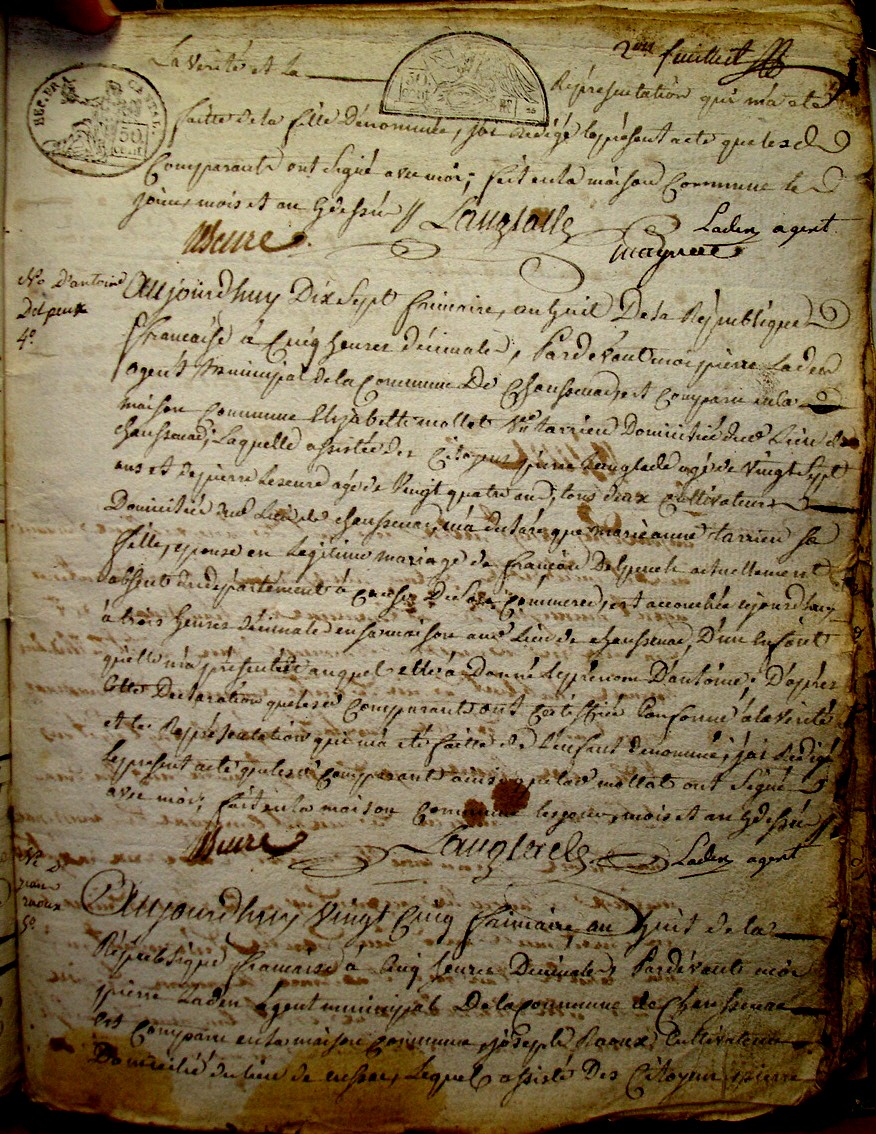 2me feuillet
La verité et la Réprésentation qui m'a eté
faitte de la fille Dénommée, jai Rédigé le présent acte que lesd
Comparants ont Signé avec moi; fait en la maison Commune le
jour, mois et an ydessus Langlade Laden agent
Meure. maynie
No. D'antoine
Delpeux
4º
Aujourdhuy Dix Sept frimaire, an huit De la République
francaise à Cinq heures décimales, Pardevant moi pierre Laden
agent municipal de la Commune De Chaussenac, est Comparu en la
maison Commune Elizabette mollat Ve tarrieu Domiciliée dud. Lieu de
chaussenac; Laquelle assistée des Citoyens pierre Langlade agé de Vingt Sept
ans et de pierre Leseure agé de Vingt quatre ans, tous deux Cultivateurs
Domiciliés dud. Lieu de chaussenac, m'a déclaré que marie anne tarrieu sa
fille, epouse en Legitime mariage de francois Delpeuch actuellement
absent du departement à Cause De Son Commerce, est accouchée ajourdhuy
à trois heures décimales en sa maison aud. Lieu de chaussenac, D'un Enfant
quelle m'a présenté et auquel elle à Donné Le prénom D'antoine; D'après
Cette Declaration que lesd. Comparants ont Certiffiée Conforme à la Verité
et la Réprésentation qui m'a eté faitte de L'enfant denommé, jai Redigé
le present acte que lesd. Comparants ainsi que lad. mollat ont Signé
avec moi; fait en la maison Commune les jour, mois et an ydessus
Meure Langlade Laden agent
No. D.
jean
raoux
5º
Aujourdhuy Vingt Cinq frimaire an huit de la
République francaise à Cinq heures Decimales Pardevant moi
pierre Laden Agent municipal De la Commune de Chaussenac
est Comparu en la maison Commune, joseph Raoux Cultivateur
Domicilié du lieu de Lequel assisté Des Citoyens pierre